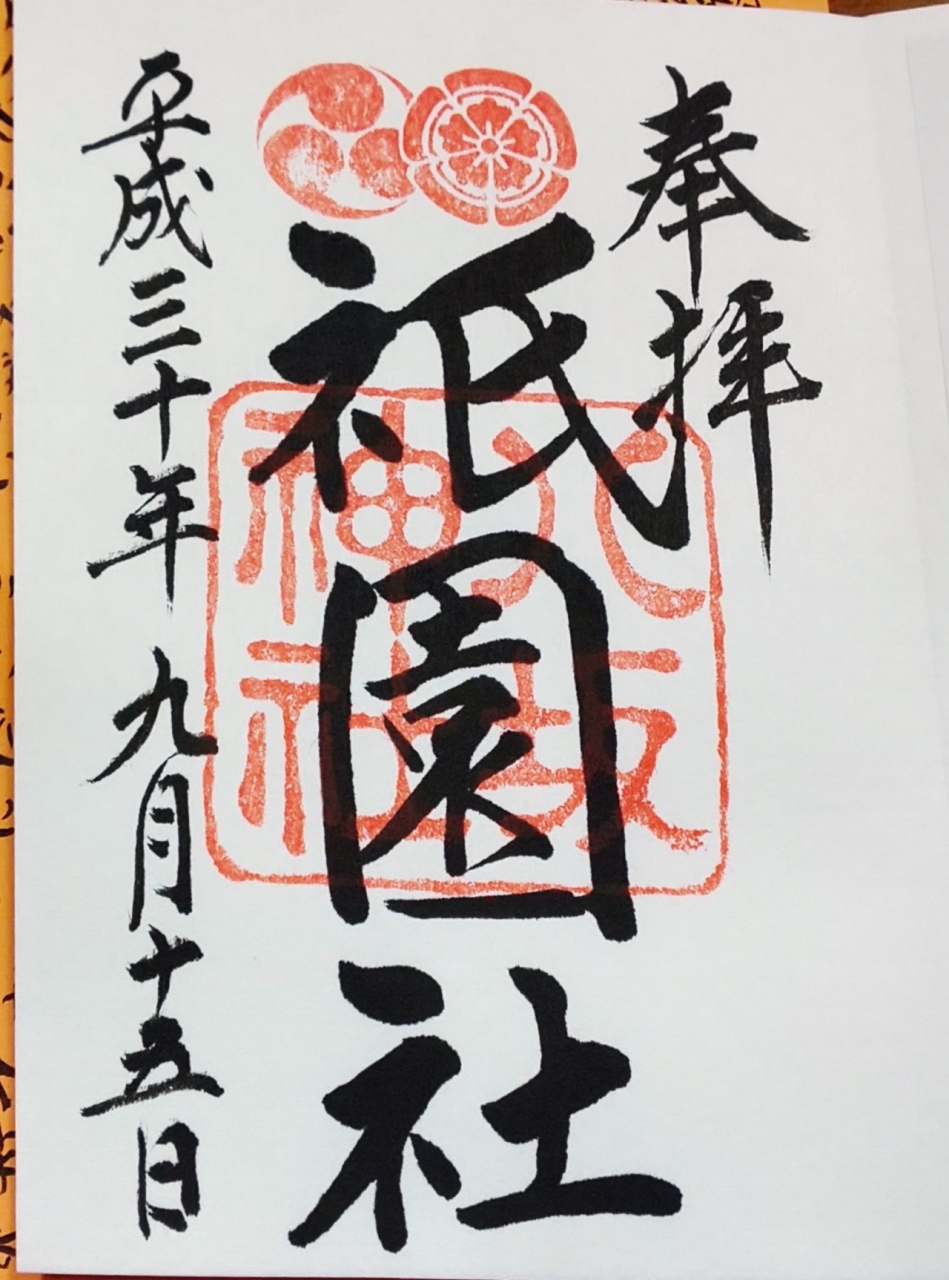 奉拝
祇園社
八坂
神社
平成三十年九月十五日